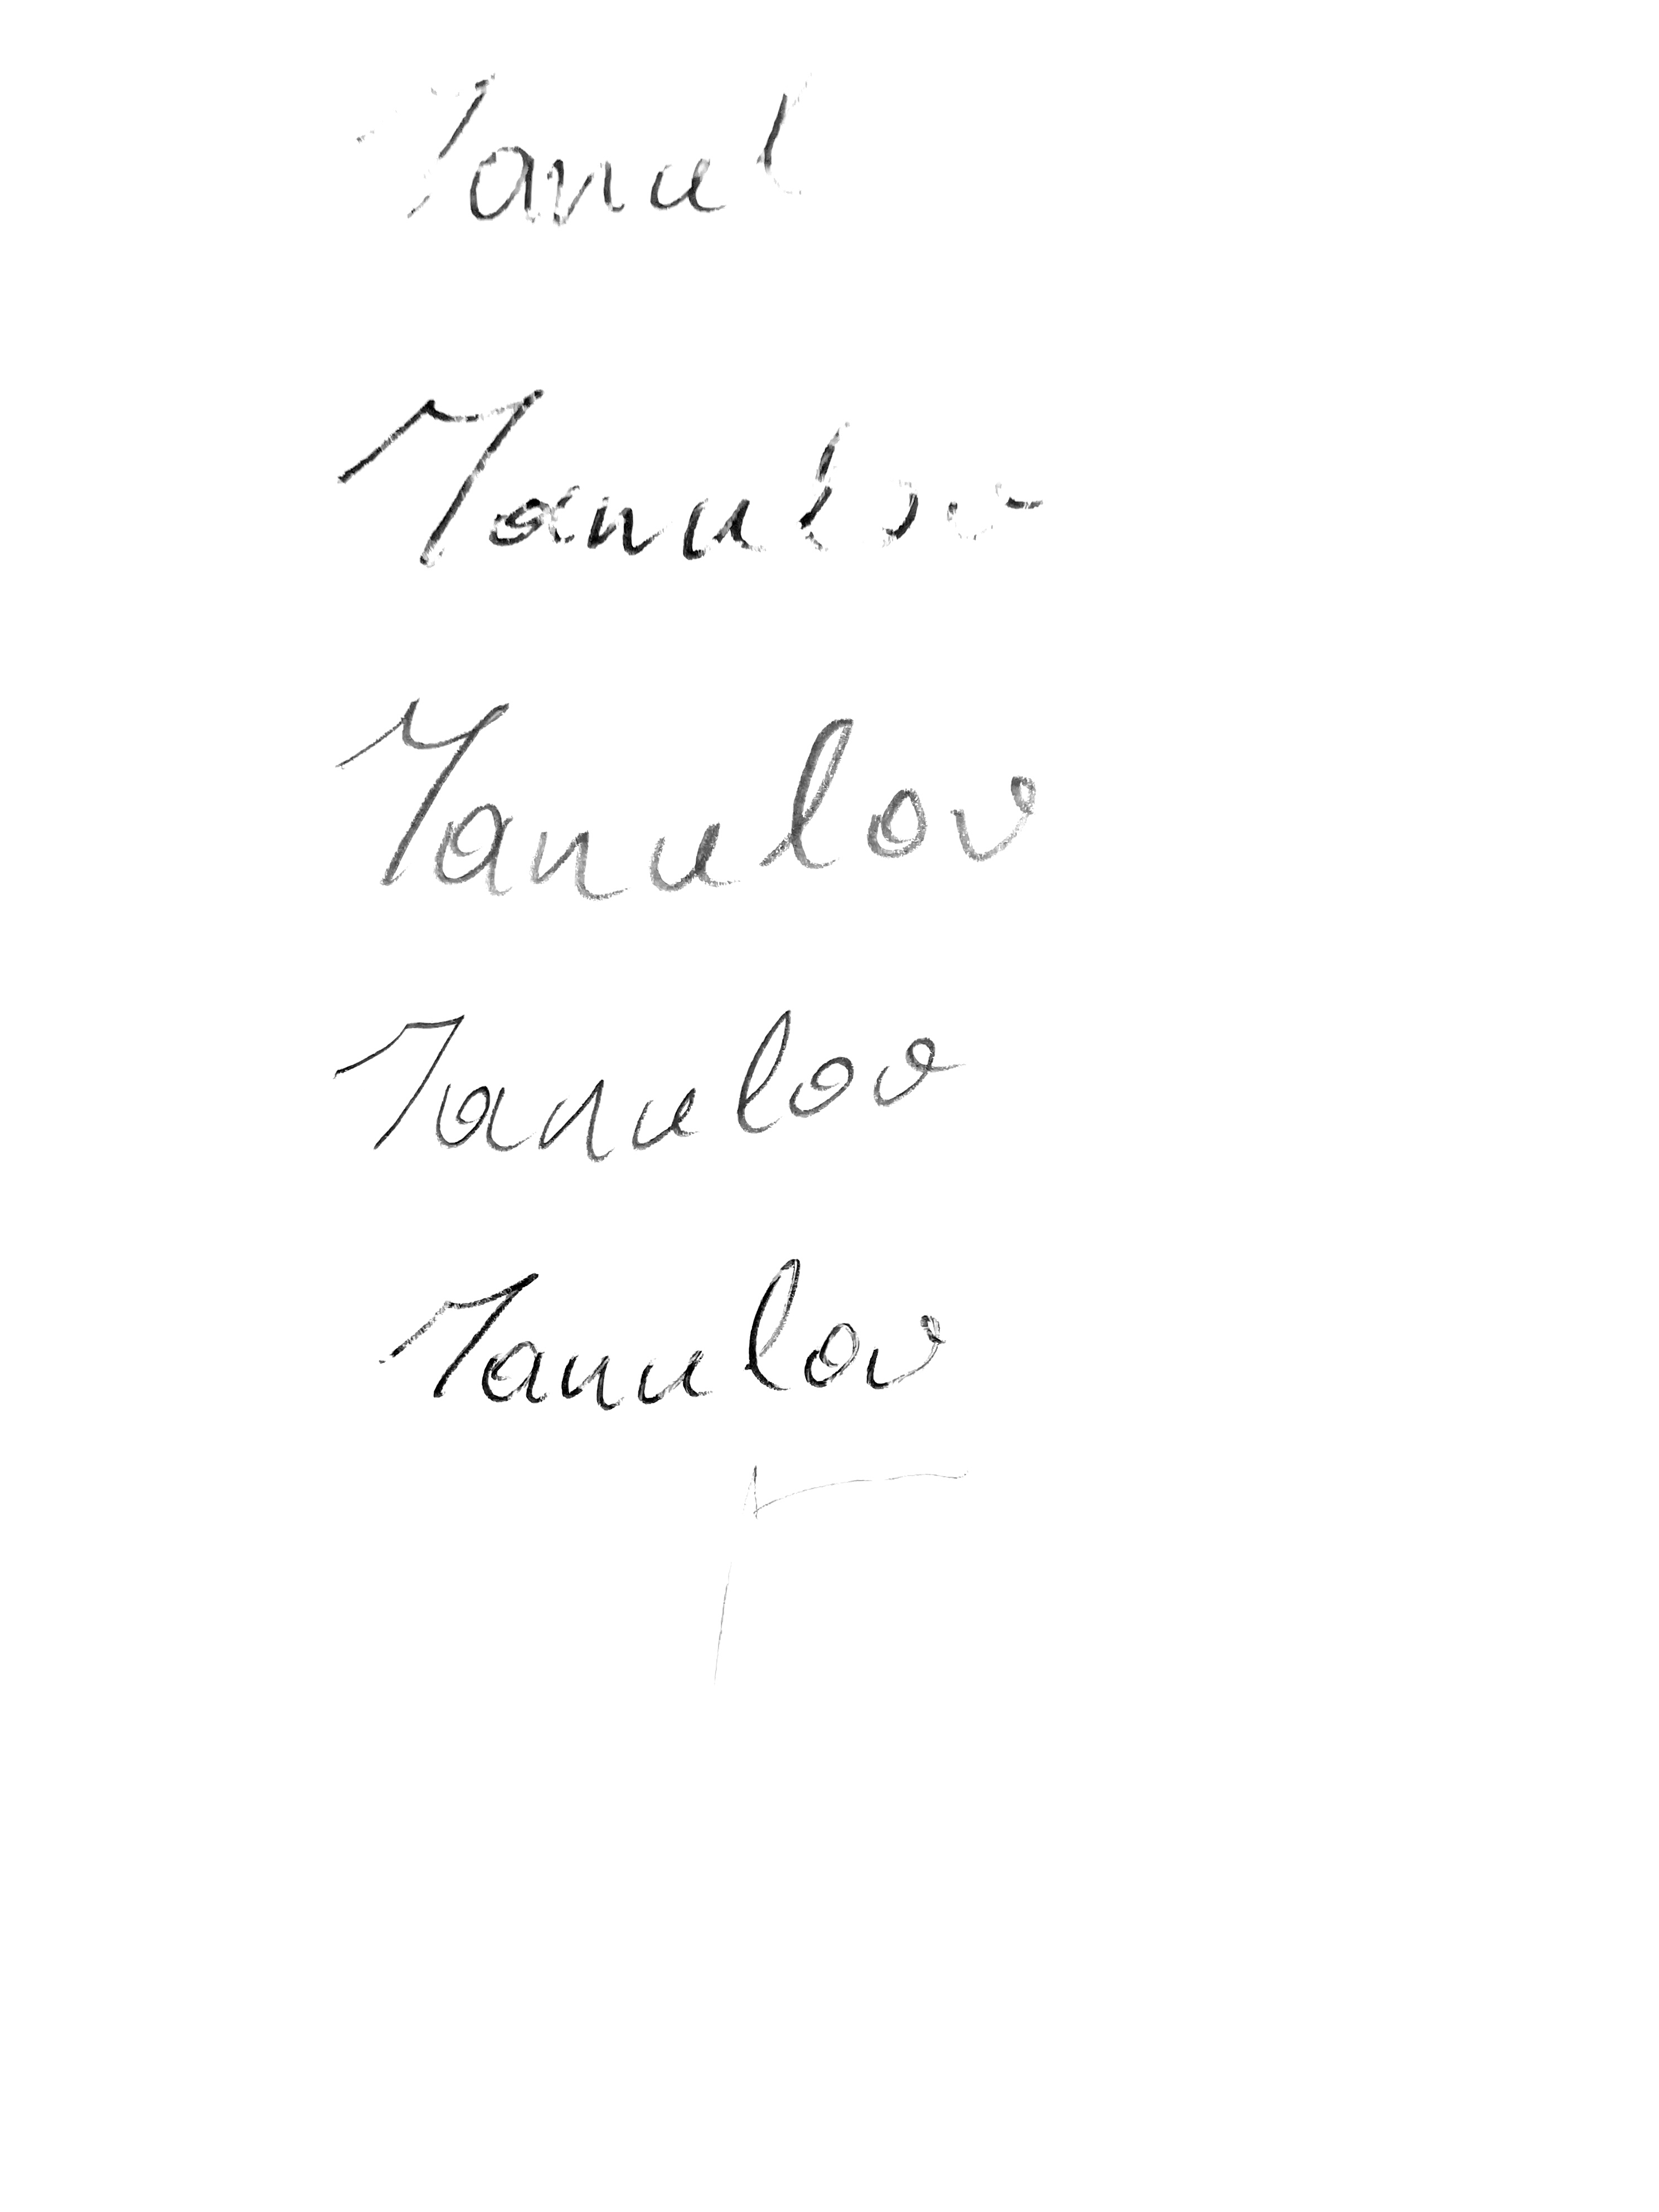 Yanul
Yanulov
Yanulov
Yanulov
Yanulov